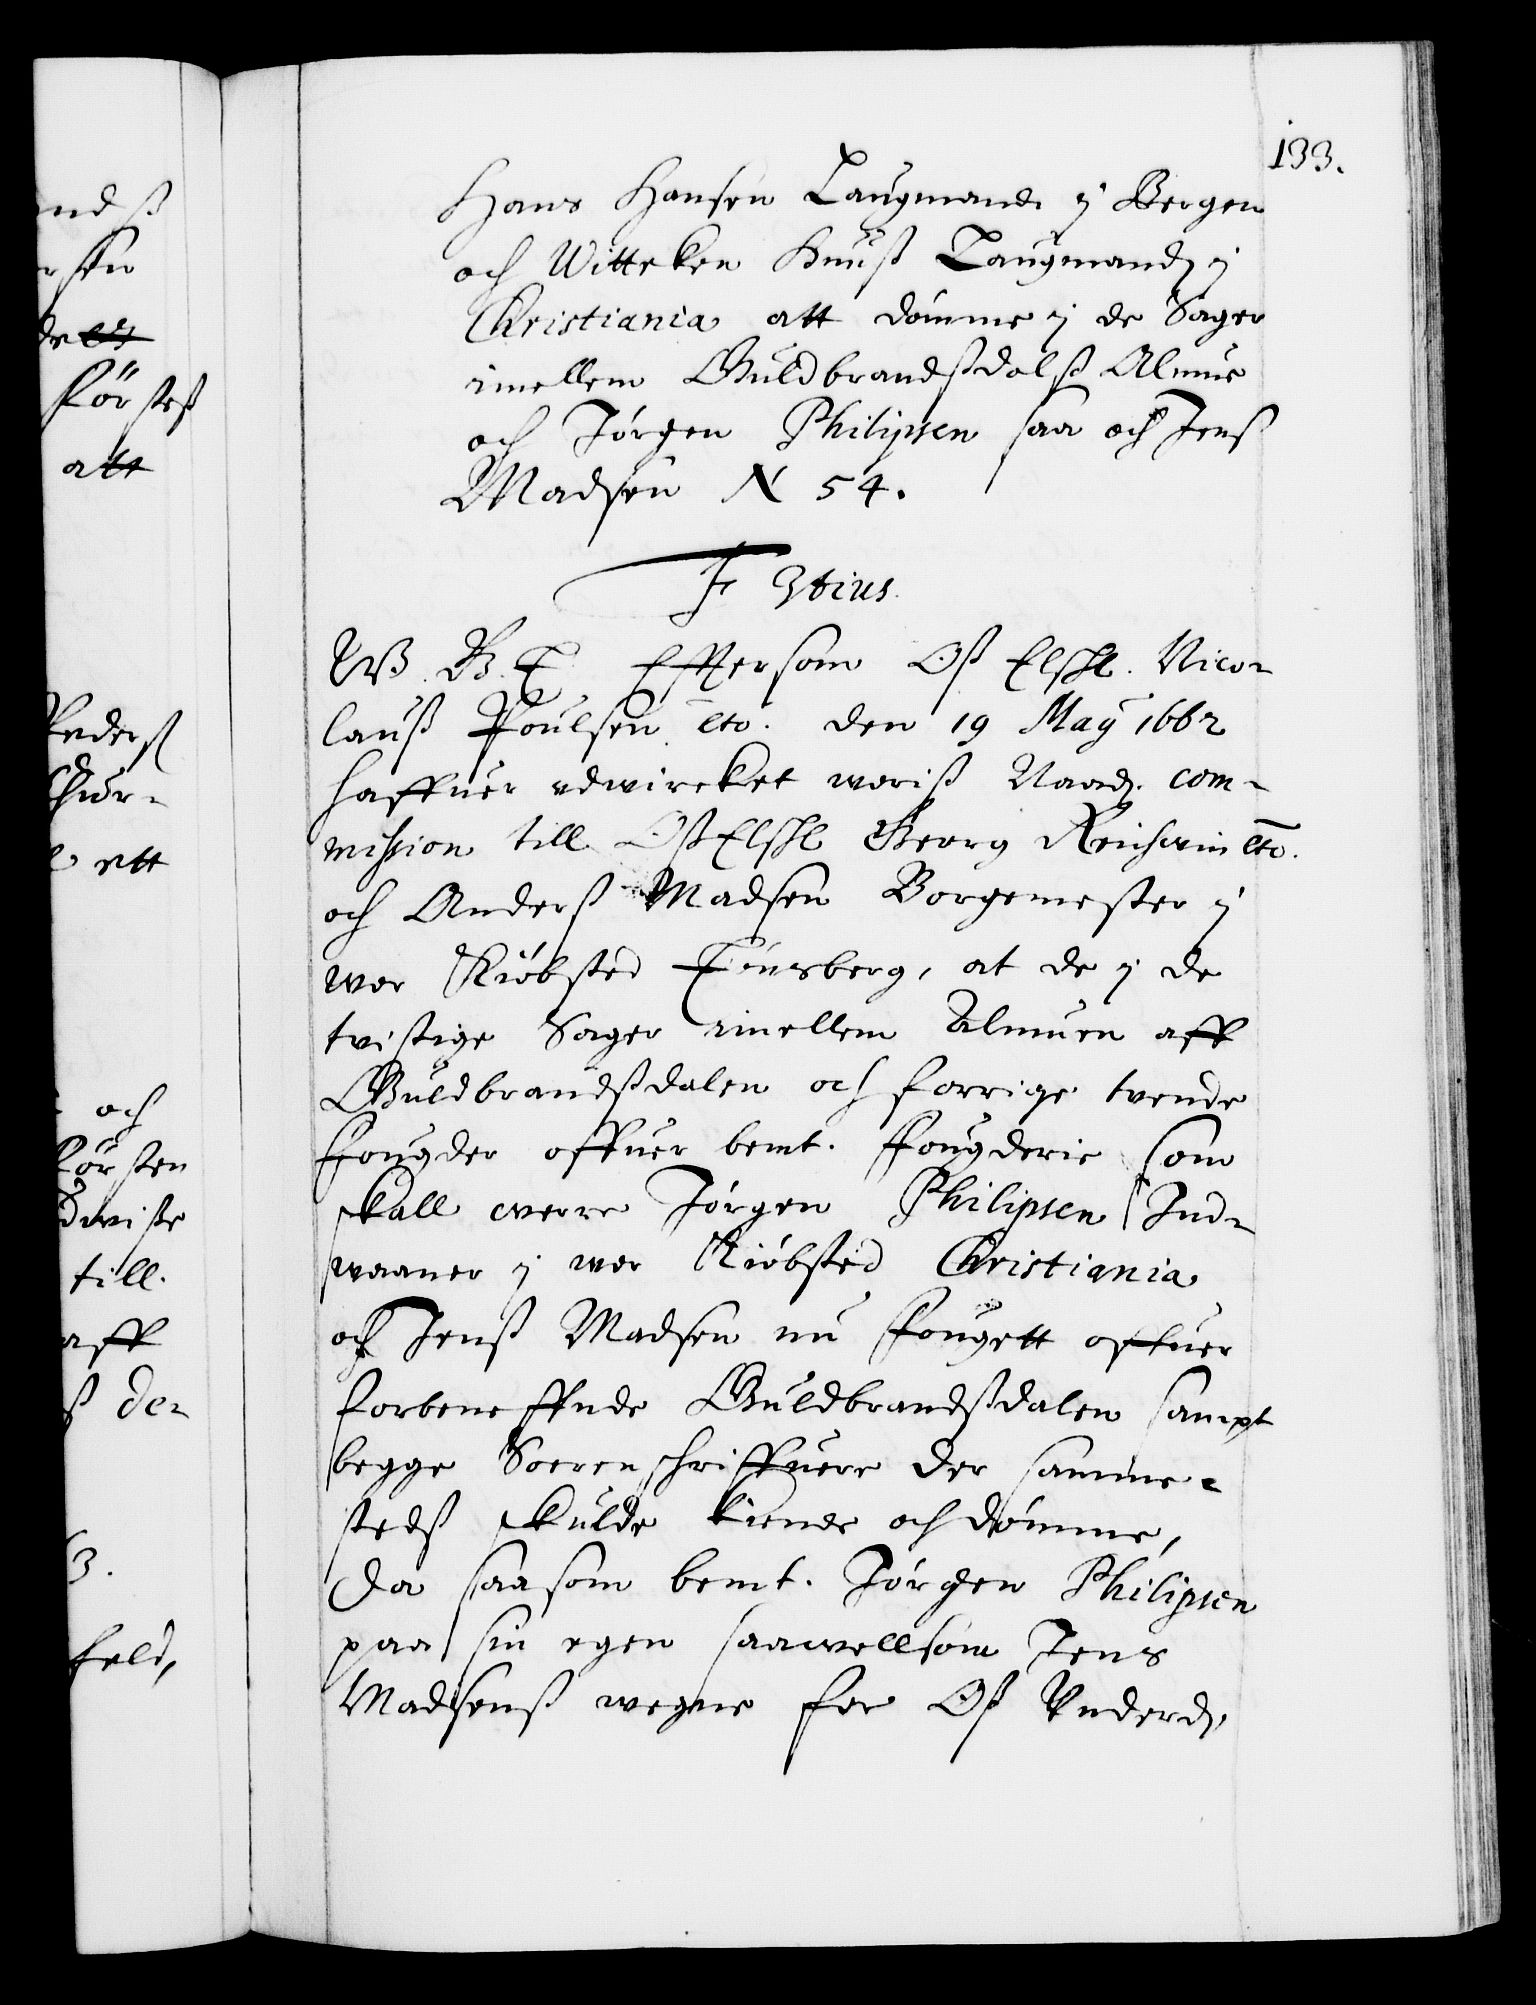 133.
Hans Hansen Laugmand y Bergen
och Witteken Huuß Laugmand y
Christiania att dømme y de Sager
imellem Guldbrandßdalß Almue
och Jørgen Philipsen saa och Jens
Madsen N 54.
F 3tius.
W. G. T. Effter som Oß Elskl. Nico-
lauß Poulsen etc. den 19 Maÿ 1662
haffuer udwircket woriß Naad. com-
mission till Oß Elskl Georg Reichwin etc.
och Anderß Madsen Borgemester y
wor Kiøbsted Tønsberg, at de y de
tvistige Sager imellem Almuen aff
Guldbrandßdalen och forrige tvende
fougder offuer bemt. fougderie som
skall werre Jørgen Philipsen Ind-
waaner y wor Kiøbsted Christiania
och Jenß Madsen nu fougett offuer
forbeneffnde Guldbrandßdalen sampt
begge Soerenschriffuere der samme-
stedß skulde kiende och dømme,
Da saasom bemt. Jørgen Philipsen
paa sin egen saawellsom Jens
Madsenß wegne for Oß Underd.
ndß
rsen
førsteß
att
Pederß
ett
och
førsten
dwiste
till.
aff
ß de-
3.
feld,